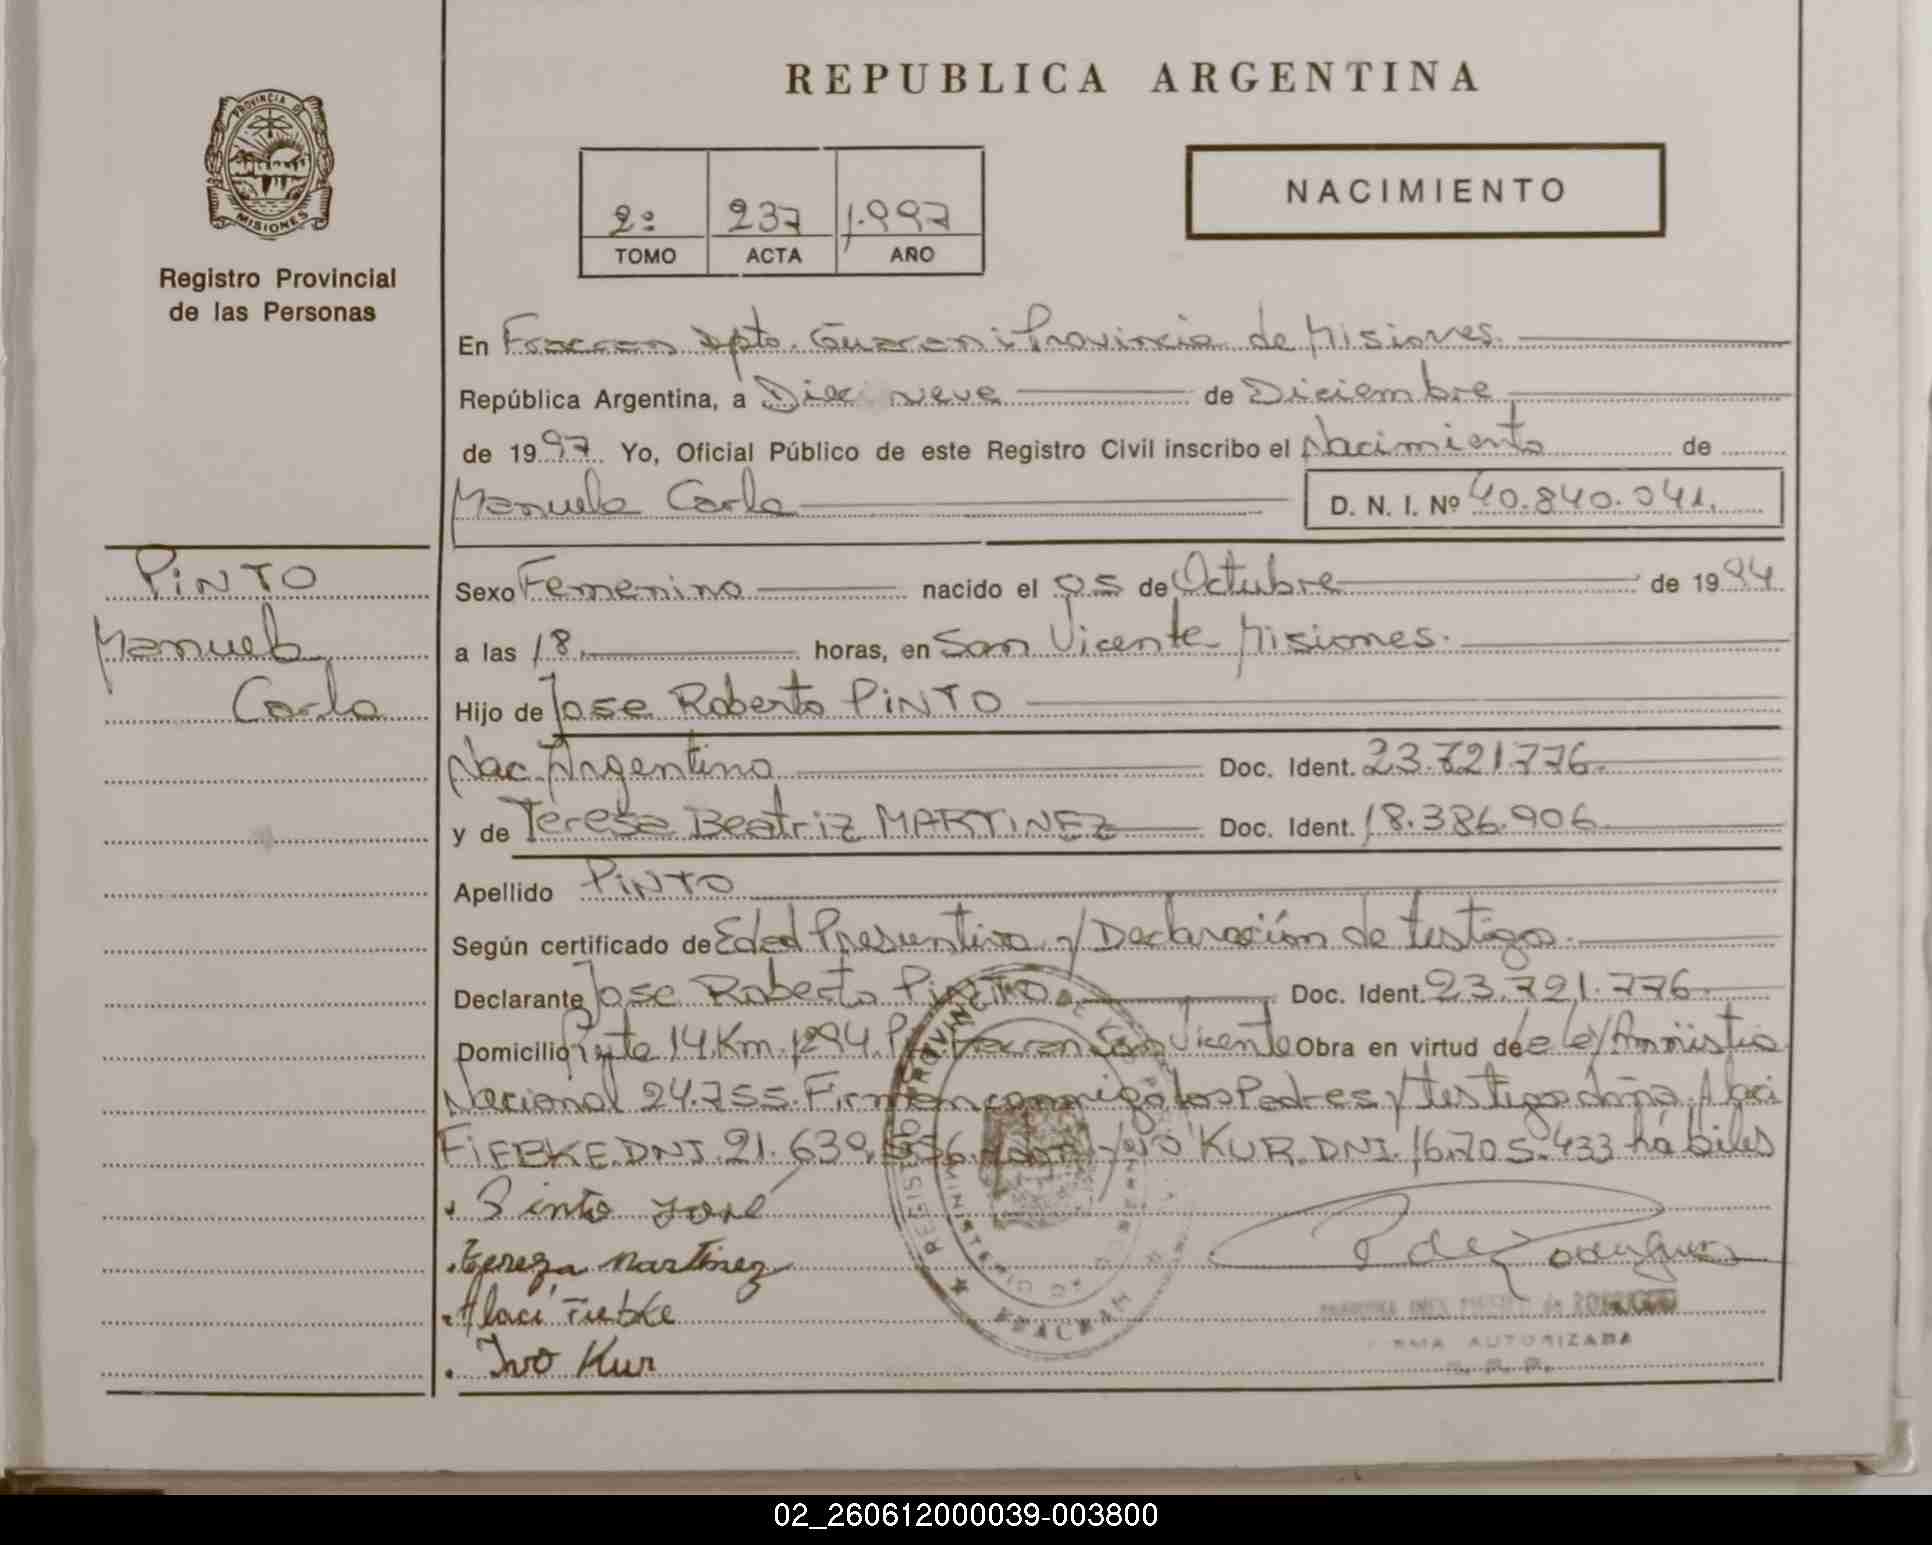 REPUBLICA ARGENTINA
PROVINCIA D
MISIONES
Registro Provincial
de las Personas
2º 237 1.997
TOMO ACTA AÑO
NACIMIENTO
En Fracran Dpto. Guarani Provincia de Misiones.
República Argentina, a Diecinueve de Diciembre
de 1997. Yo, Oficial Público de este Registro Civil inscribo el Nacimiento de
Manuela Carla D. N. I. Nº 40.840.041.
PiNTO
Manuela
Carla
Sexo Femenino nacido el 05 de Octubre de 1994
a las 18. horas, en San Vicente Misiones.
Hijo de Jose Roberto PiNTO
Nac. Argentina Doc. Ident. 23.721.776.
y de Teresa Beatriz MARTiNEZ Doc. Ident. 18.386.906
Apellido PiNTO
Según certificado de Edad Presuntiva y Declaración de testigo.
Declarante Jose Roberto PiNTO Doc. Ident. 23.721.776.
Domicilio Ruta 14 Km. 1294. Fracran San Vicente Obra en virtud de Ley Amnistia
Nacional 24.755. Firman conmigo los Padres y testigos doña Alaci
FiEBKE DNI. 21.639.556 don Ivo KUR. DNI. 16.705.433 hábiles
. Pinto José
. Tereza Martinez
. Alaci Fiebke
. Ivo Kur
REGISTRO PROVINCIAL DE
MINISTERIO DE GOBIERNO
FRACRAN
FIRMA AUTORIZADA
02_260612000039-003800